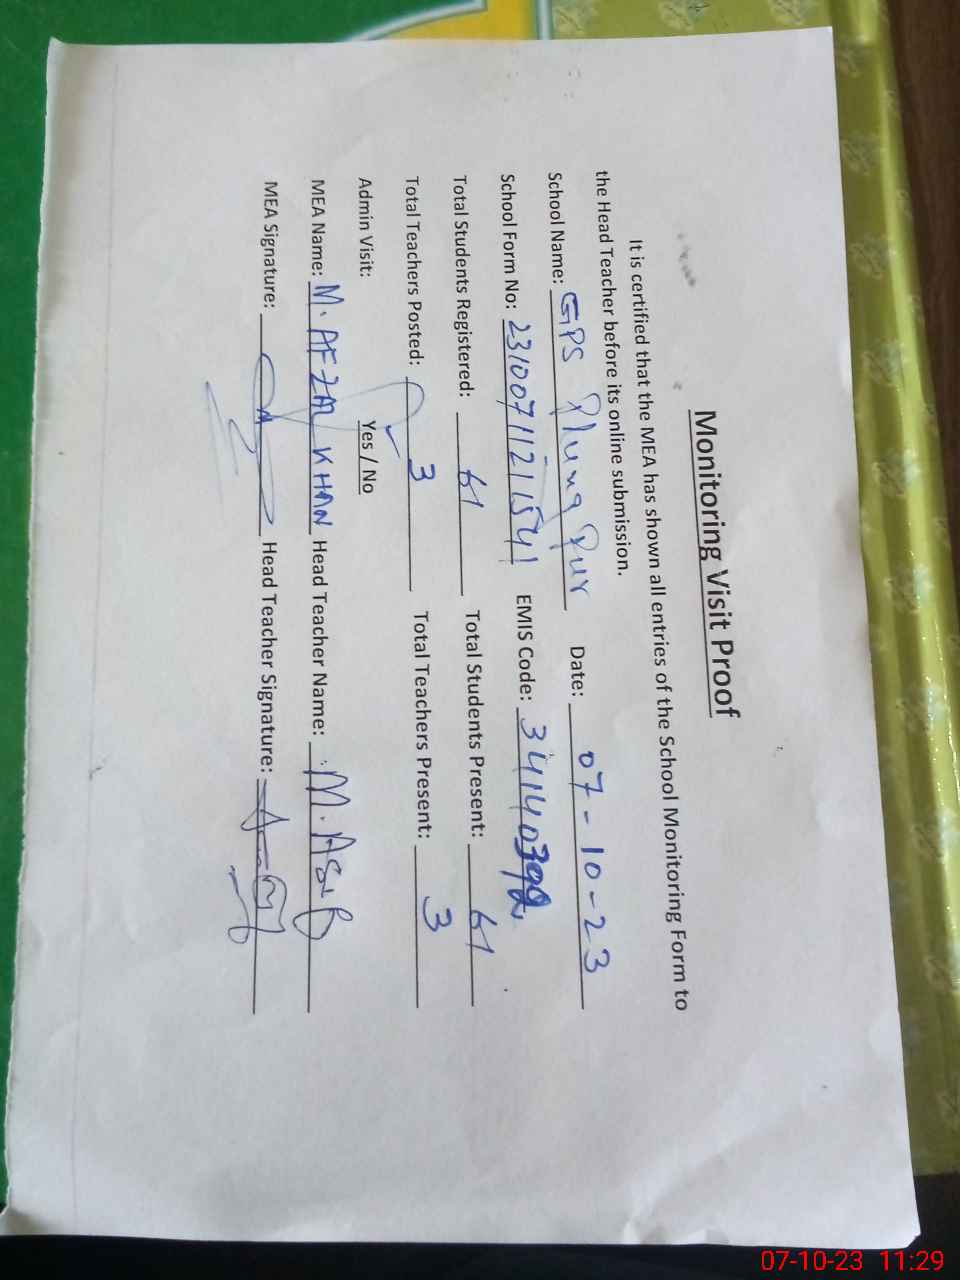 Monitoring Visit Proof
It is certified that the MEA has shown all entries of the School Monitoring Form to
the Head Teacher before its online submission.
School Name: GPS Plung Pur Date: 07-10-23
School Form No: 2310071121541 EMIS Code: 34140392
Total Students Registered: 61 Total Students Present: 61
Total Teachers Posted: 3 Total Teachers Present: 3
Admin Visit: Yes / No
MEA Name: M. AFZAL KHAN Head Teacher Name: M. Asif
MEA Signature: Head Teacher Signature:
07-10-23 11:29